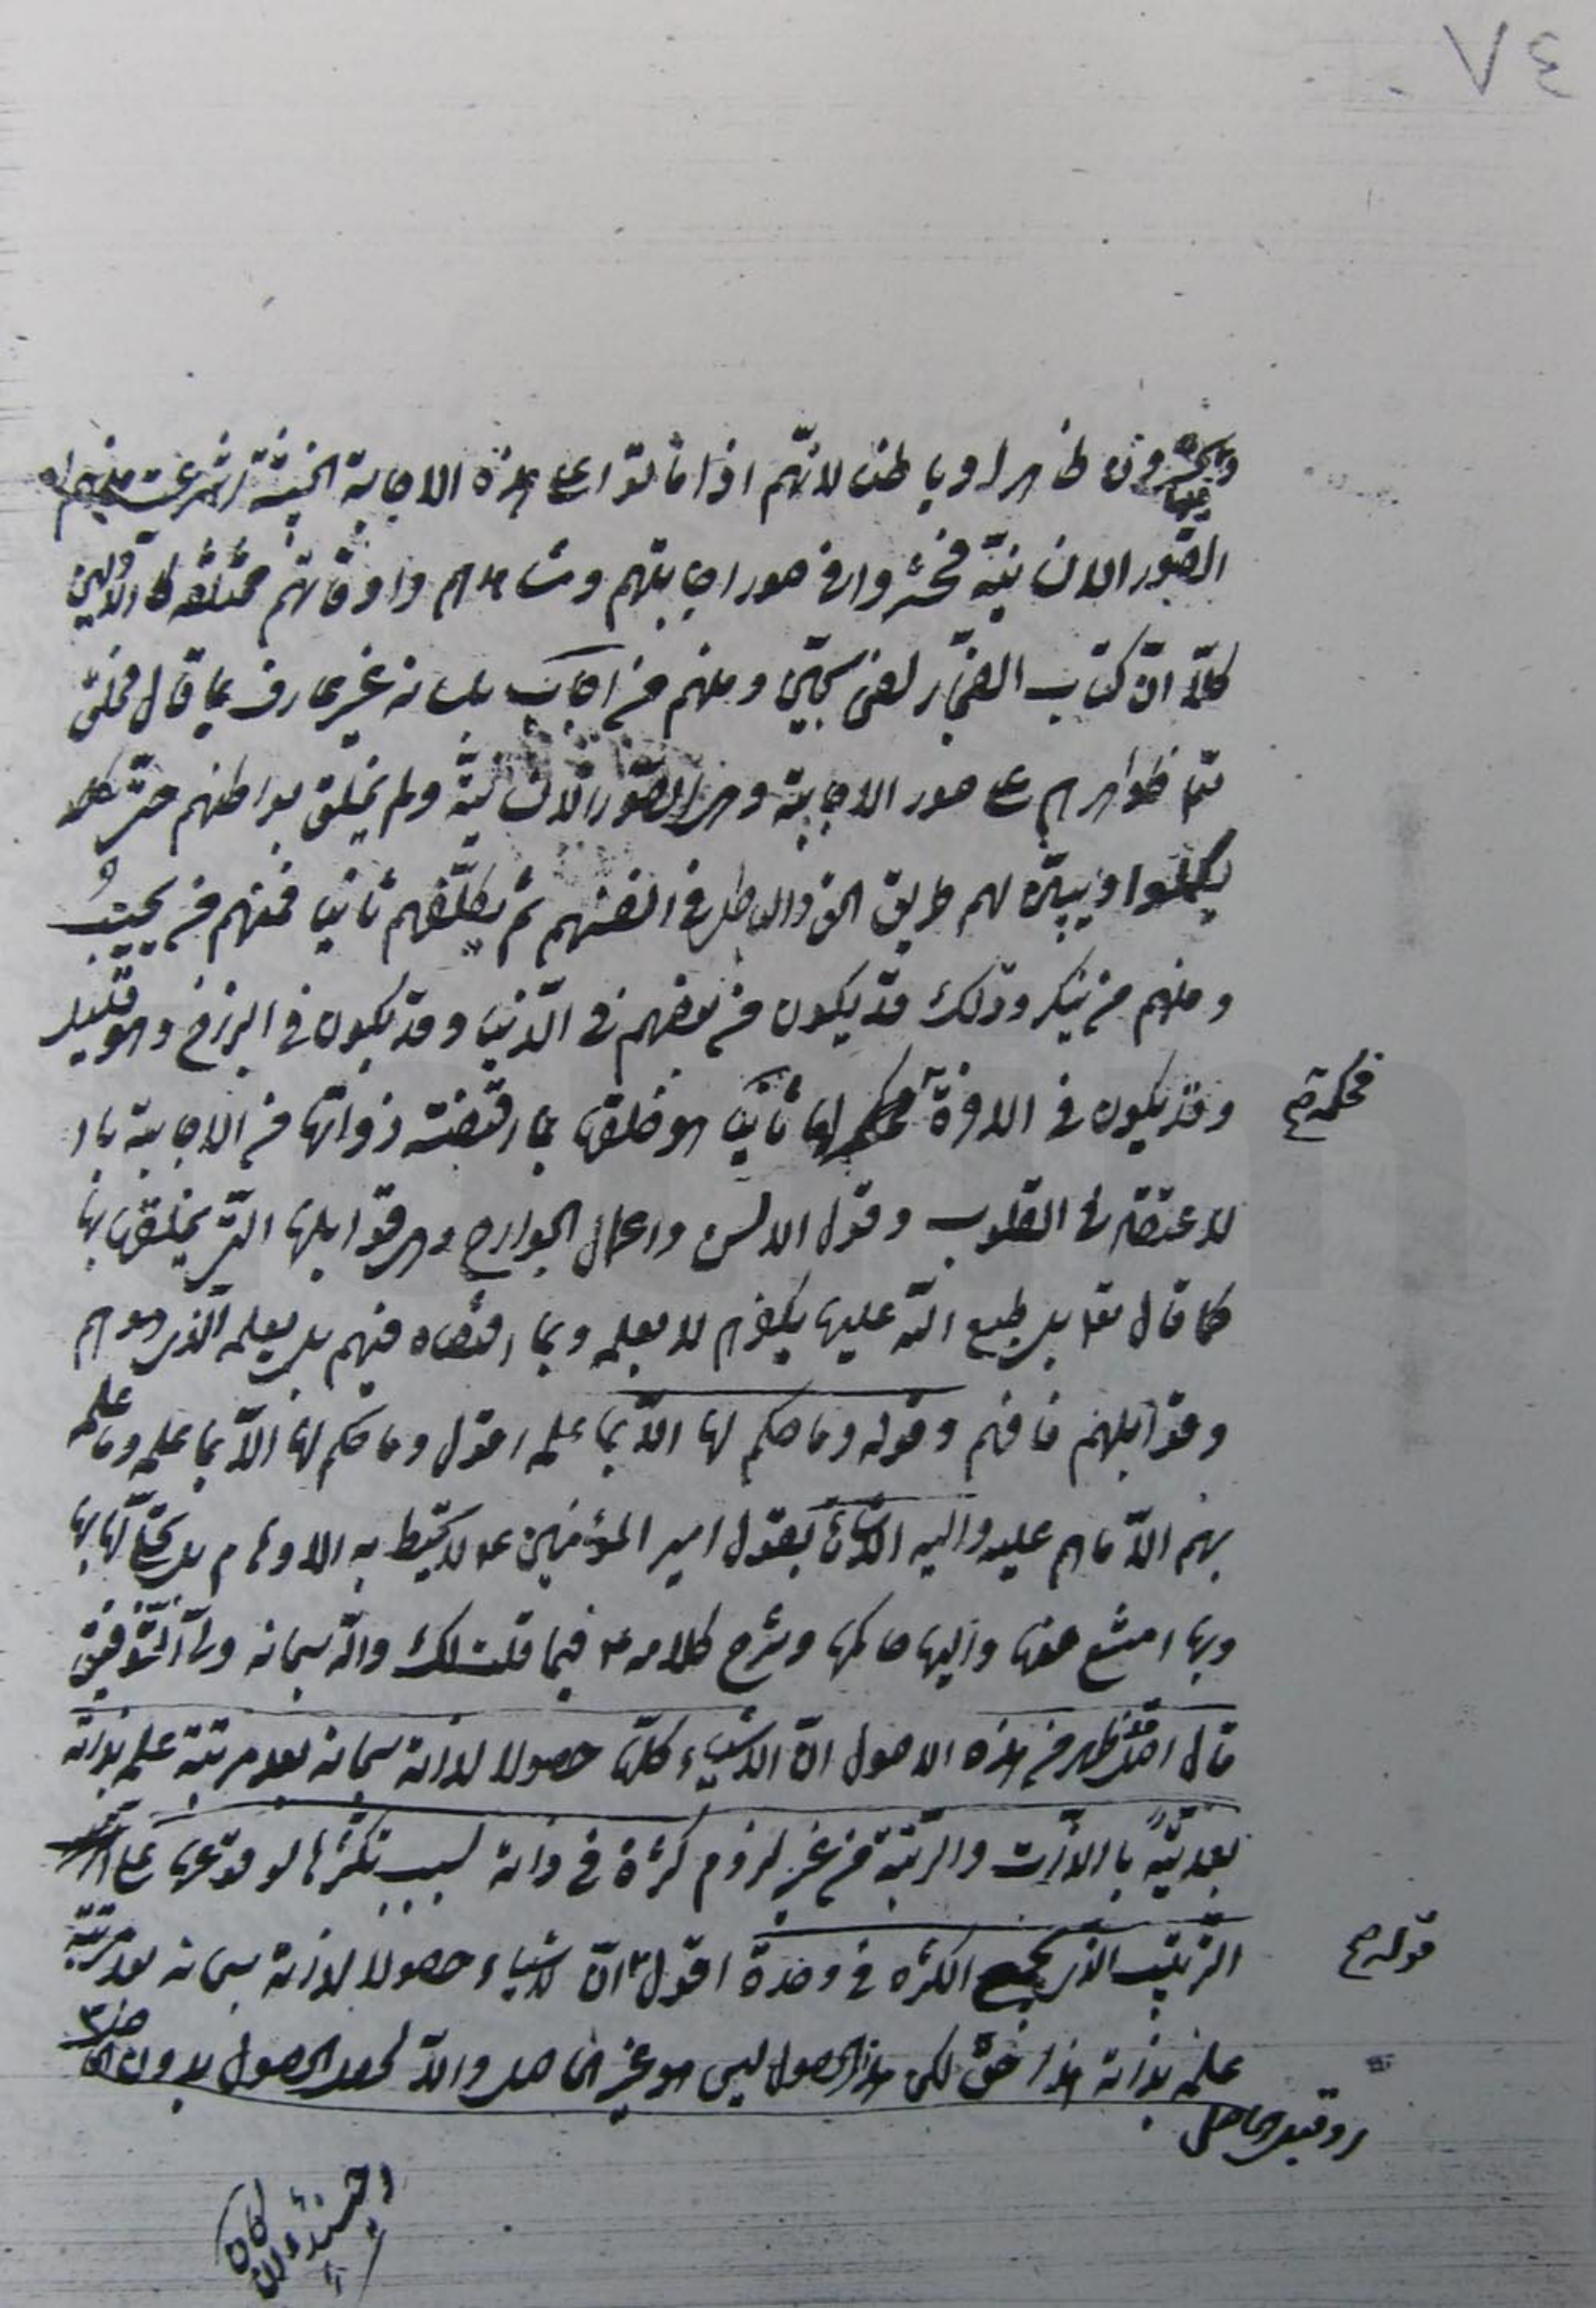 ٧٤
ويحشرون ظاهرا وباطنا لانهم اذا ماتوا على هذه الاجابة الخبيثة انتزعت منهم
الصور الانسانية فحشروا في صور اجابتهم وشاهم واوقاتهم
كلا ان كتاب الفجار لفي سجين ومنهم من اجاب بلسانه غير عارف بما قال فخلق
ظواهرهم على صور الاجابة وهي الصور الانسانية ولم يخلق بواطنهم حتى
يكملوا ويبين لهم طريق الحق والباطل في انفسهم ثم يكلفهم ثانيا فمنهم من يجيب
ومنهم من ينكر وذلك قد يكون من بعضهم في الدنيا وقد يكون في البرزخ وهو قليل
وقد يكون في الاخرة فحكم لها ثانيا هو خلقها بما اقتضته ذواتها من الاجابة بالا
لاعتقاد في القلوب وقول الالسن واعمال الجوارح وهي قوابلها التي يخلقها بها
كما قال تعا بل طبع الله عليها بكفرهم لا بعلمه وبما اقتضاه فيهم بل بعلمه الذي هو هم
وقوابلهم فافهم وقوله وما حكم لها الا بما علمه اقول وما حكم لها الا بما علمه وما علمه
بهم الا ما هم عليه واليه الاشارة بقول امير المؤمنين ع لا تحيط به الاوهام بل تجلى لها بها
وبها امتنع منها واليها حاكمها وشرح كلامه ع فيما قلت لك والله سبحانه ولي التوفيق
قال اصل قد ظهر من هذه الاصول ان الاشياء كلها حصولا لذاته سبحانه بعد مرتبة علمه بذاته
بعدية بالذات والرتبة من غير لزوم كثرة في ذاته لسبب تكثرها لوقوعها على
الترتيب الذي يجمع الكثرة في وحدة اقول ان للاشياء حصولا لذاته سبحانه بعد مرتبة
علمه بذاته هذا حق لكن هذا الحصول ليس هو غير الحاصل والا لحصل الحصول بدون الحاصل
فحكمه صح
قوله صح
او قبل الحاصل